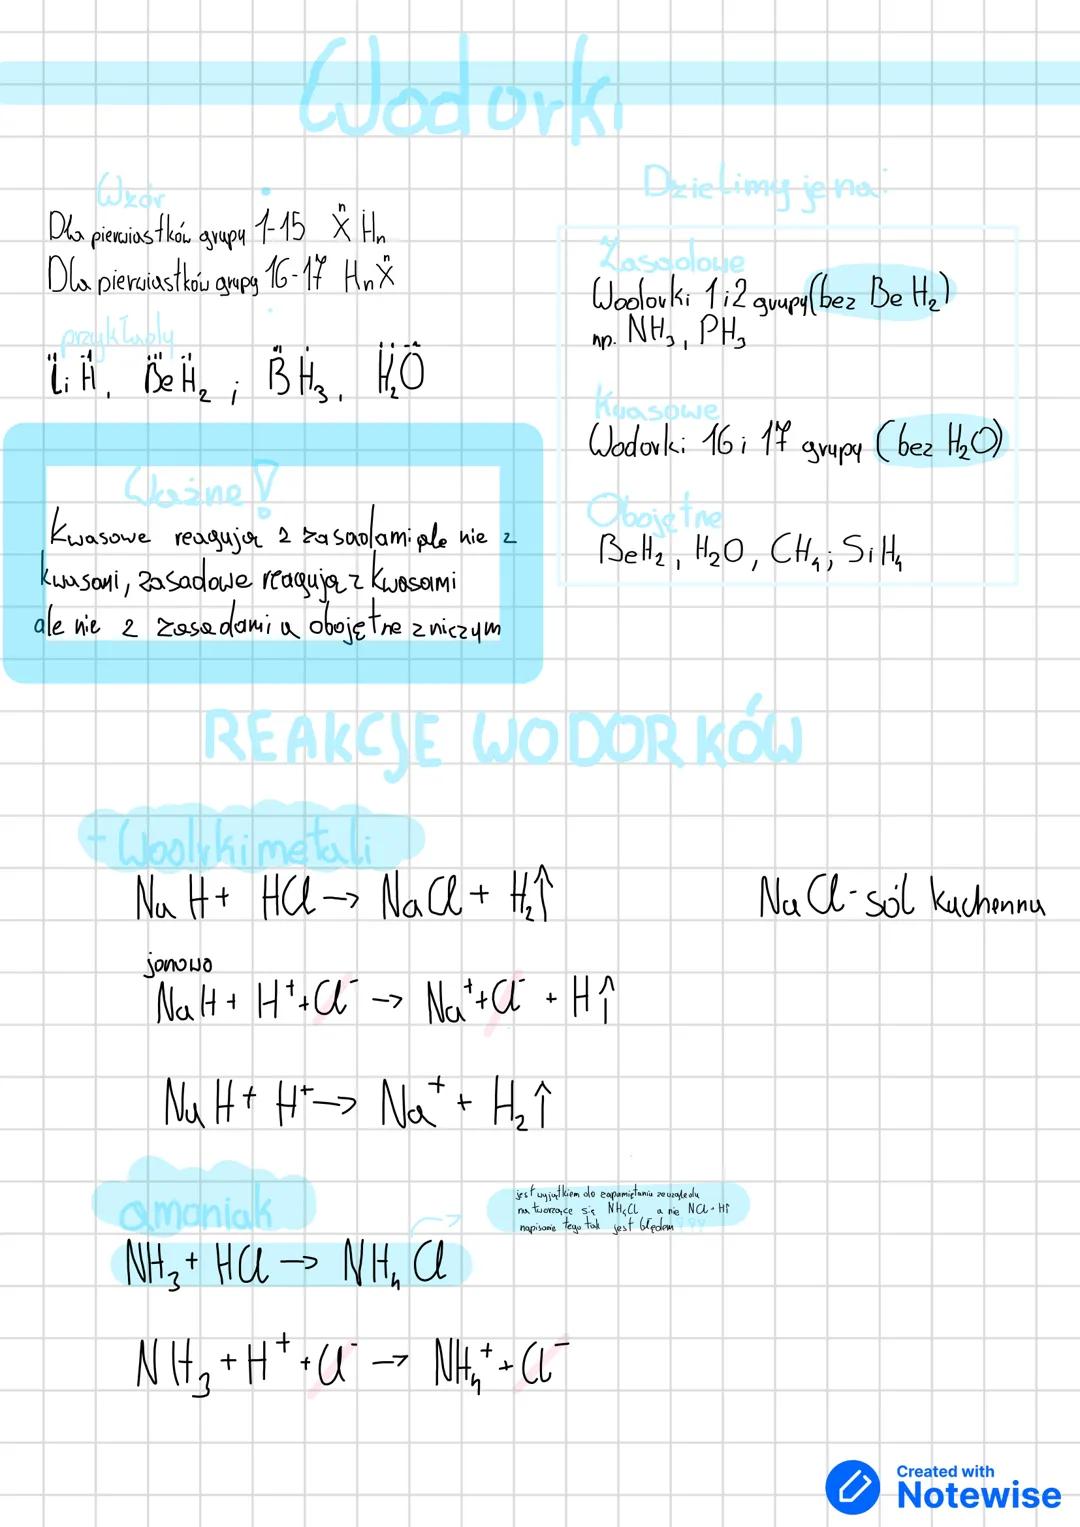 Wodorki
Wzór
Dla pierwiastków grupy 1-15 X Hn
Dla pierwiastków grupy 16-17 HnX
przykłady
LiH, BeH₂ ; BH₃, H₂O
Ważne!
Kwasowe reagują z zasadami ale nie z
kwasami, zasadowe reagują z kwasami
ale nie z zasadami a obojętne z niczym
Dzielimy je na:
Zasadowe
Wodorki 1 i 2 grupy (bez BeH₂)
np. NH₃, PH₃
Kwasowe
Wodorki 16 i 17 grupy (bez H₂O)
Obojętne
BeH₂, H₂O, CH₄; SiH₄
REAKCJE WODORKÓW
- Wodorki metali
NaH + HCl → NaCl + H₂↑
NaCl - sól kuchenna
jonowo
NaH + H⁺ + Cl⁻ → Na⁺ + Cl⁻ + H↑
NaH + H⁺ → Na⁺ + H₂↑
amoniak
jest wyjątkiem do zapamiętania ze względu
na tworzące się NH₄Cl a nie NCl + H↑
napisanie tego tak jest błędem
NH₃ + HCl → NH₄Cl
NH₃ + H⁺ + Cl⁻ → NH₄⁺ + Cl⁻
Created with
Notewise